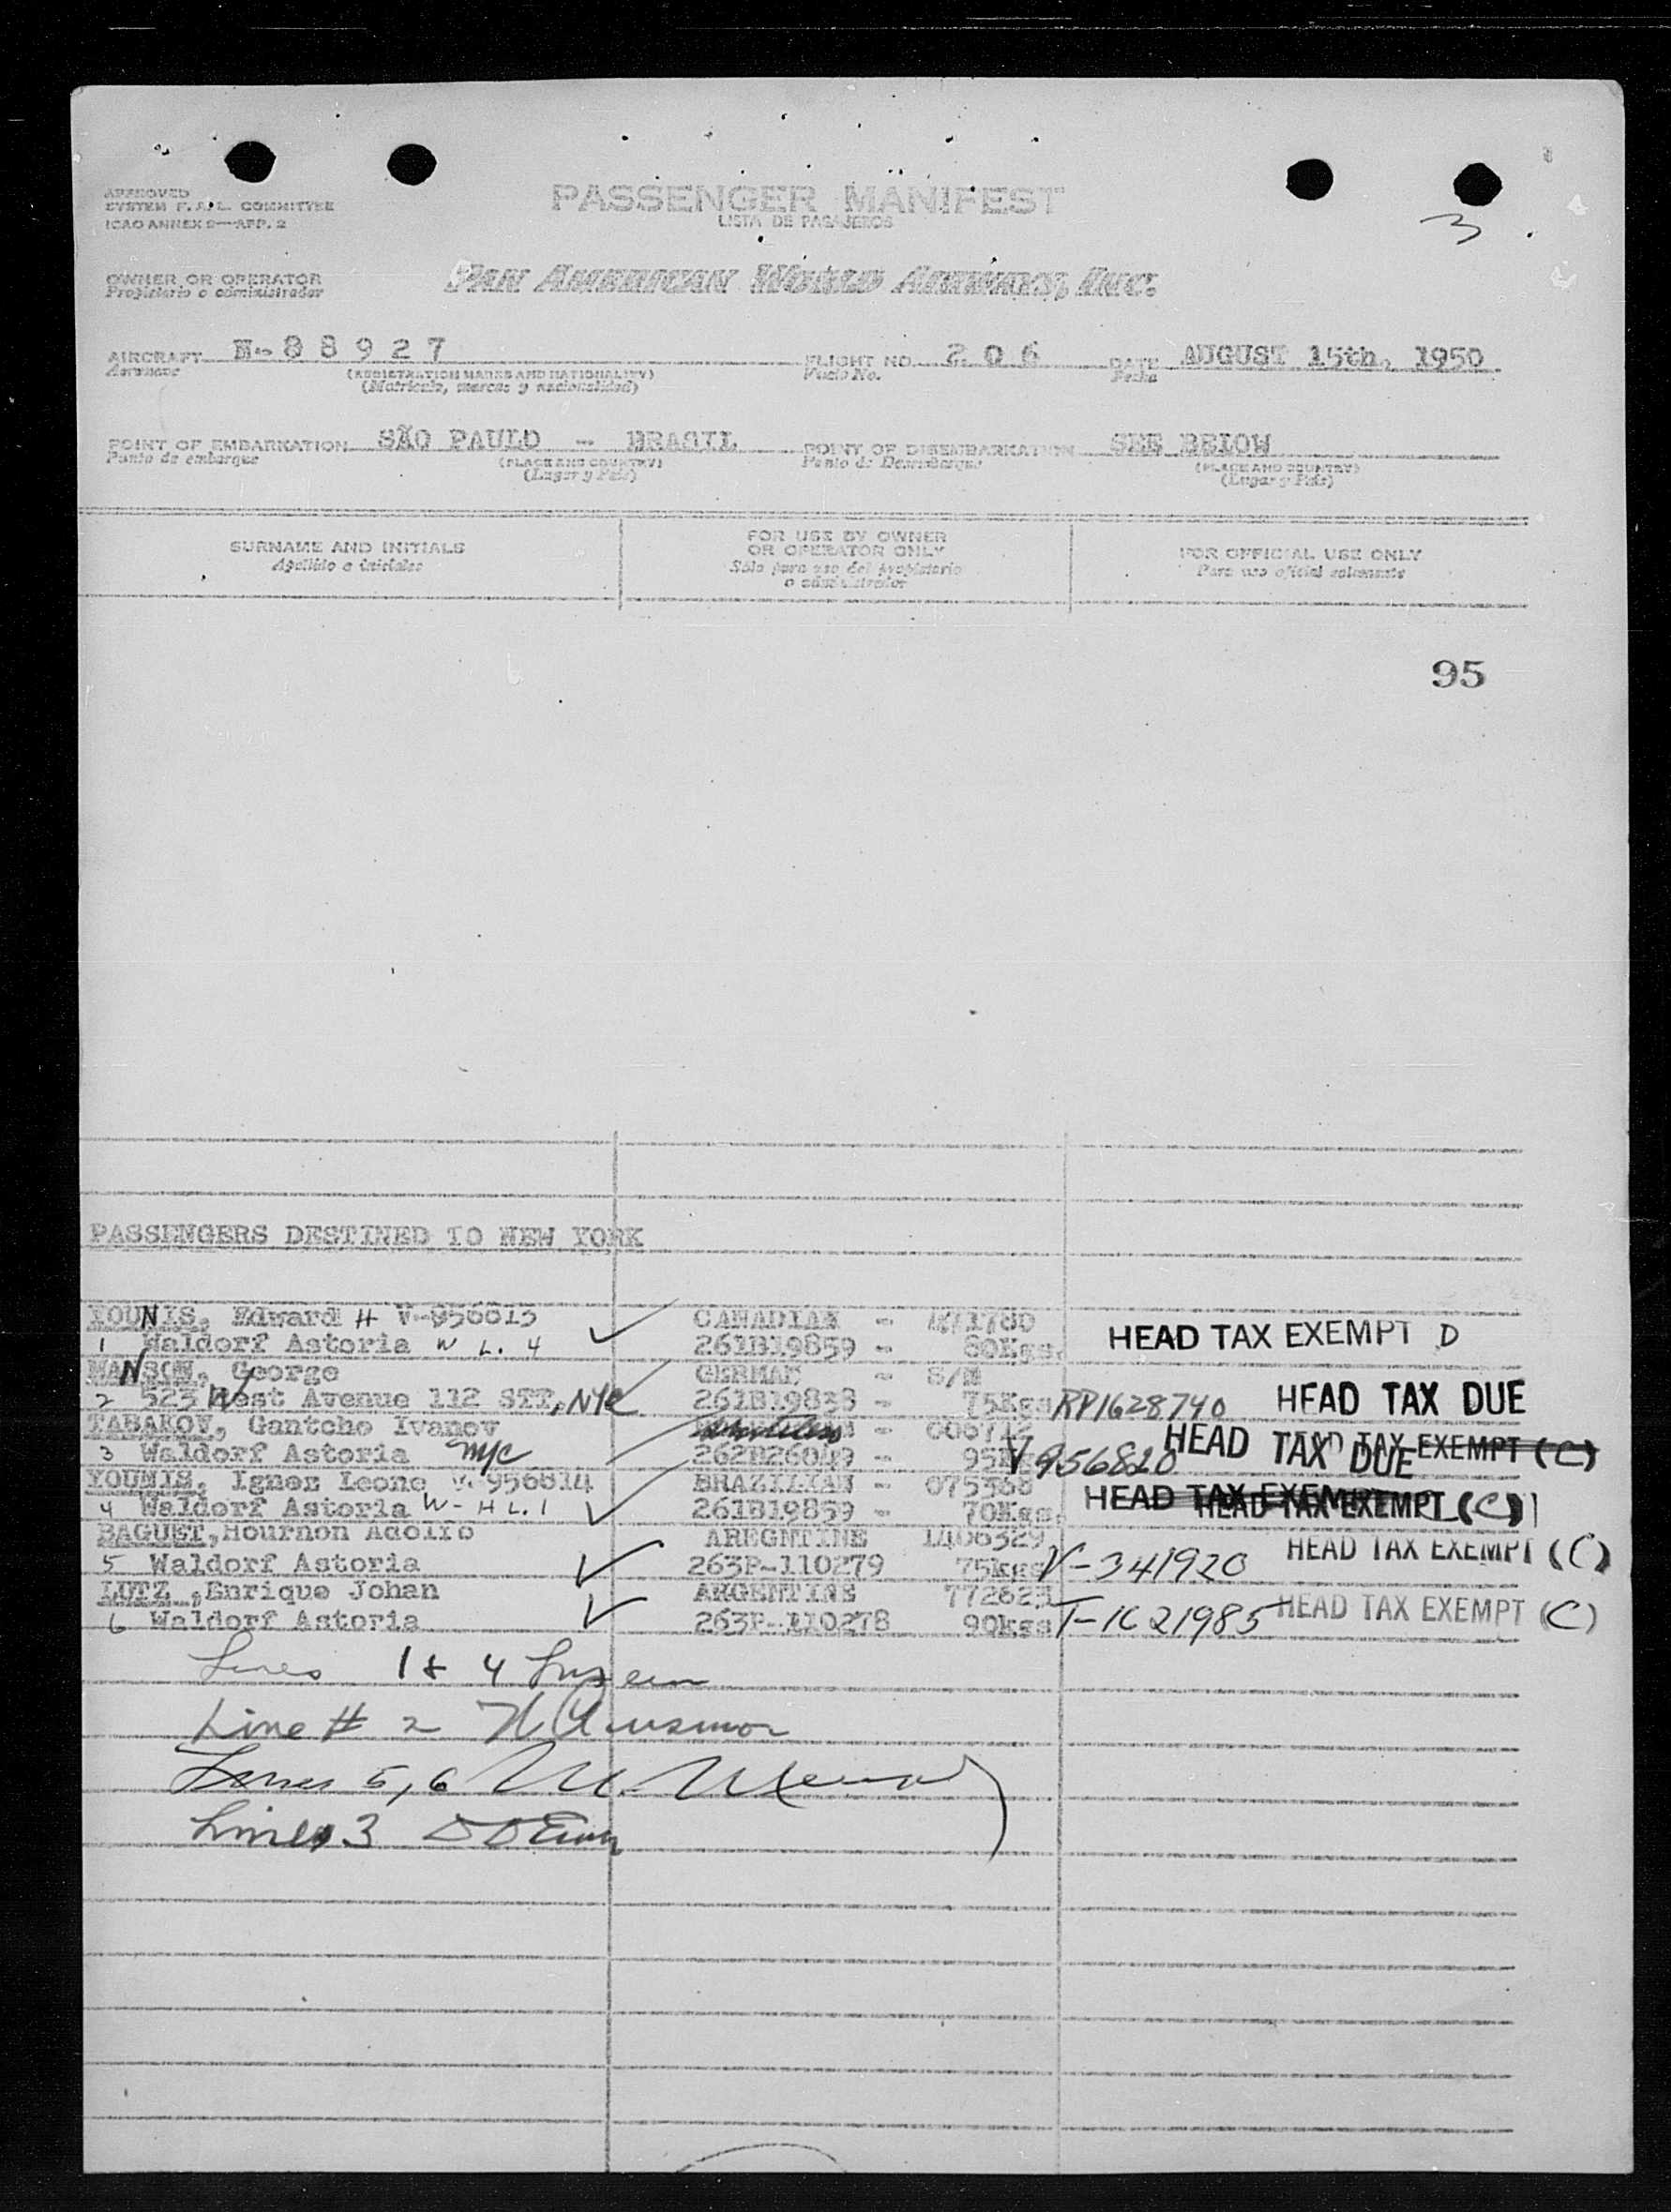 APPROVED
SYSTEM F.A.L. COMMITTEE
ICAO ANNEX 9—APP. 2
PASSENGER MANIFEST
LISTA DE PASAJEROS
3
OWNER OR OPERATOR
Propietario o administrador
PAN AMERICAN WORLD AIRWAYS, INC.
AIRCRAFT N-88927 FLIGHT NO. 206 DATE AUGUST 15th, 1950
Aeronave (REGISTRATION MARKS AND NATIONALITY) Vuelo No. Fecha
(Matrícula, marcas y nacionalidad)
POINT OF EMBARKATION SÃO PAULO - BRASIL POINT OF DISEMBARKATION SEE BELOW
Punto de embarque (PLACE AND COUNTRY) Punto de Desembarque (PLACE AND COUNTRY)
(Lugar y País) (Lugar y País)
SURNAME AND INITIALS FOR USE BY OWNER OR OPERATOR ONLY FOR OFFICIAL USE ONLY
Apellido e iniciales Sólo para uso del propietario o administrador Para uso oficial solamente
95
PASSENGERS DESTINED TO NEW YORK
YOUNIS, Edward H V-956813 CANADIAN -
1 Waldorf Astoria W L. 4 261B19859 - 80Kgs. HEAD TAX EXEMPT D
MANSON, George GERMAN - S/N
2 523 West Avenue 112 STT, NYC 261B19838 - 75Kgs RP1628740 HEAD TAX DUE
TABAKOV, Gantcho Ivanov
3 Waldorf Astoria NYC 262B26049 - V956820 HEAD TAX DUE HEAD TAX EXEMPT (C)
YOUNIS, Ignez Leone V-956814 BRAZILIAN - 075588
4 Waldorf Astoria W-H L.1 261B19859 - 70Kgs. HEAD TAX EXEMPT HEAD TAX EXEMPT (C)
BAGUET, Hournon Adolfo AREGNTINE 1406329
5 Waldorf Astoria 263P-110279 75kgs V-341920 HEAD TAX EXEMPT (C)
LUTZ, Enrique Johan ARGENTINE 772623
6 Waldorf Astoria 263P-110278 90kgs T-1621985 HEAD TAX EXEMPT (C)
Lines 1 & 4
Line # 2
Lines 5, 6
Lines 3